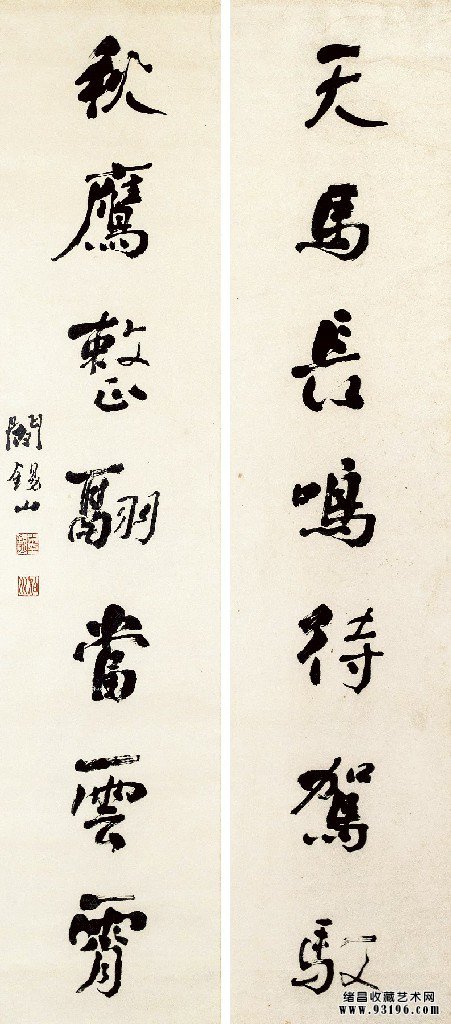 天馬長鳴待駕馭
秋鷹整翮當雲霄
閻錫山
绪昌收藏艺术网
www.93196.com